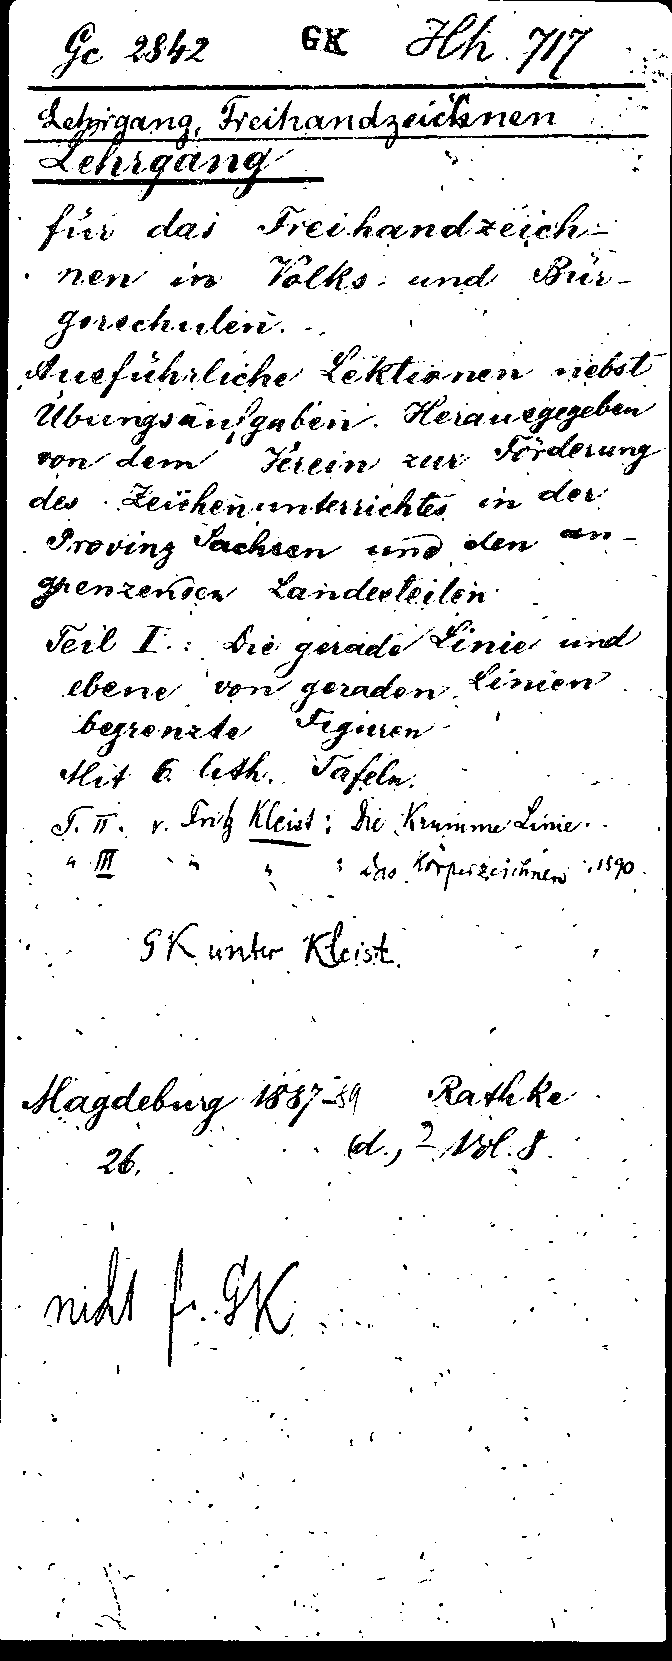 Gc 2842 GK Hh 717
Lehrgang, Freihandzeichnen
Lehrgang
für das Freihandzeich-
nen in Volks- und Bür-
gerschulen.
Ausführliche Lektionen nebst
Übungsaufgaben. Herausgegeben
von dem Verein zur Förderung
des Zeichenunterrichtes in der
Provinz Sachsen und den an-
grenzenden Landesteilen
Teil I.: Die gerade Linie und
ebene von geraden Linien
begrenzte Figuren
Mit 6 lith. Tafeln.
T. II. v. Fritz Kleist: Die Krumme Linie.
" III " " : Das Körperzeichnen. 1890.
GK unter Kleist.
Magdeburg 1887-89 Rathke
26. (d., 2 Vol. 8.
nicht f. GK